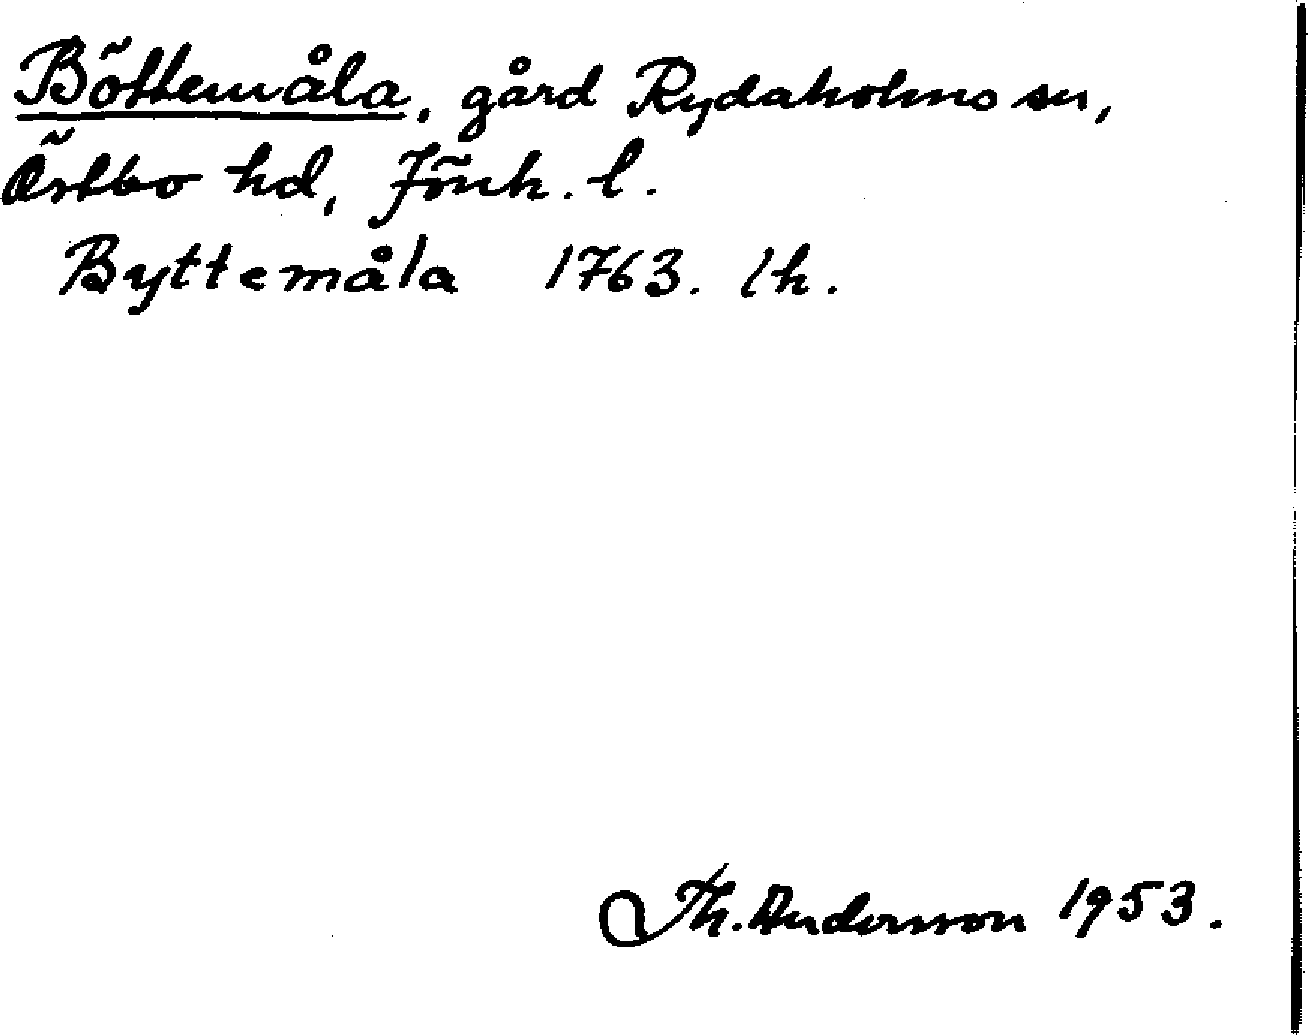 Böttemåla, gård Rydaholms sn,
Östbo hd, Jönk. l.
Byttemåla 1763. lk.
Th. Andersson 1953.